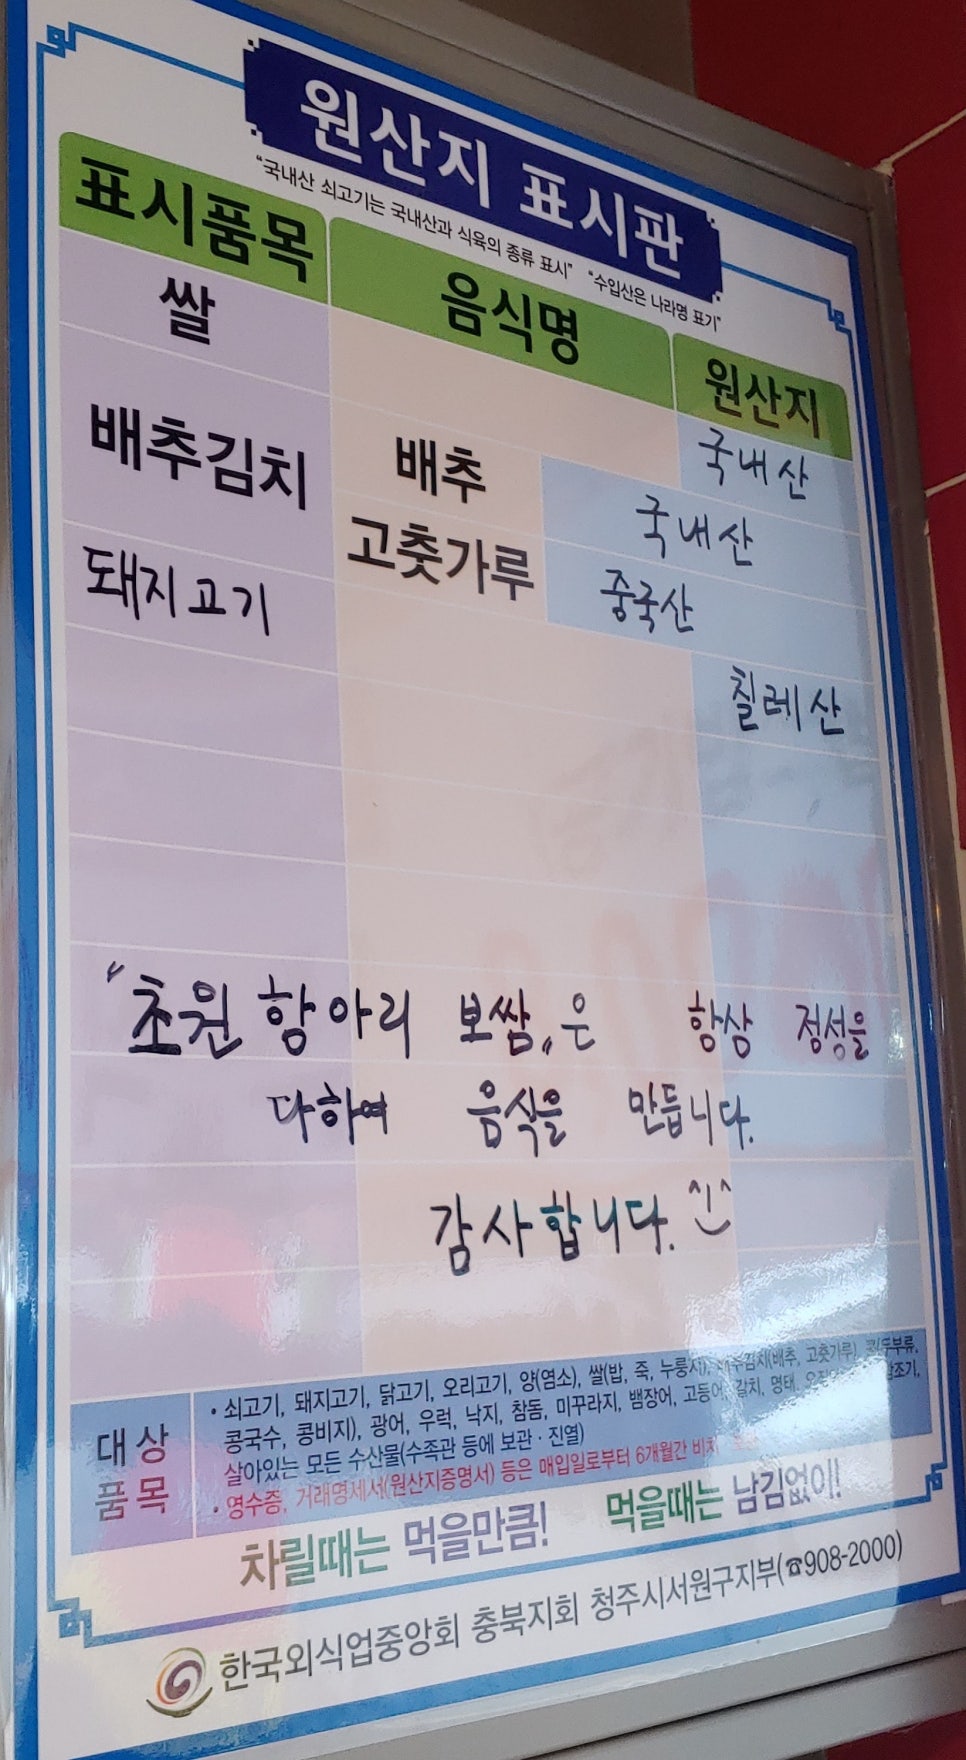 원산지 표시판
"국내산 쇠고기는 국내산과 식육의 종류 표시" "수입산은 나라명 표기"
표시품목 음식명 원산지
쌀 국내산
배추김치 배추 국내산
고춧가루 중국산
돼지고기 칠레산
"초원 항아리 보쌈"은 항상 정성을
다하여 음식을 만듭니다.
감사합니다. ^!^
대상
품목
• 쇠고기, 돼지고기, 닭고기, 오리고기, 양(염소), 쌀(밥, 죽, 누룽지), 배추김치(배추, 고춧가루), 콩(두부류,
콩국수, 콩비지), 광어, 우럭, 낙지, 참돔, 미꾸라지, 뱀장어, 고등어, 갈치, 명태,
살아있는 모든 수산물(수족관 등에 보관·진열)
• 영수증, 거래명세서(원산지증명서) 등은 매입일로부터 6개월간 비치
차릴때는 먹을만큼! 먹을때는 남김없이!
한국외식업중앙회 충북지회 청주시서원구지부(☎908-2000)